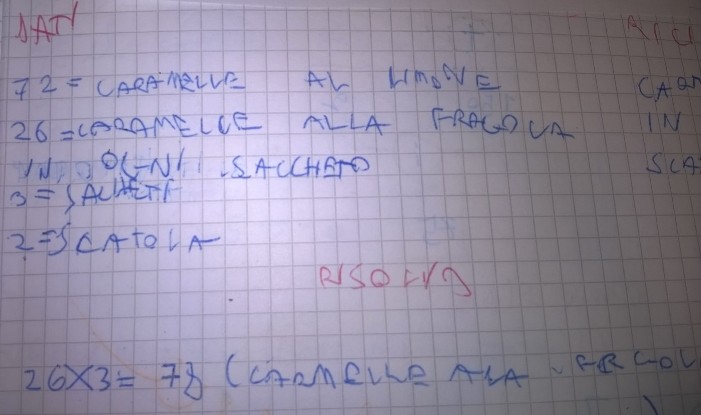 DATI
72 = CARAMELLE AL LIMONE
26 = CARAMELLE ALLA FRAGOLA IN
IN OGNI SACCHETO
3 = SACHETI
2 = SCATOLA
RISOLVO
26X3= 78 (CARMELLE ALA FRGOL